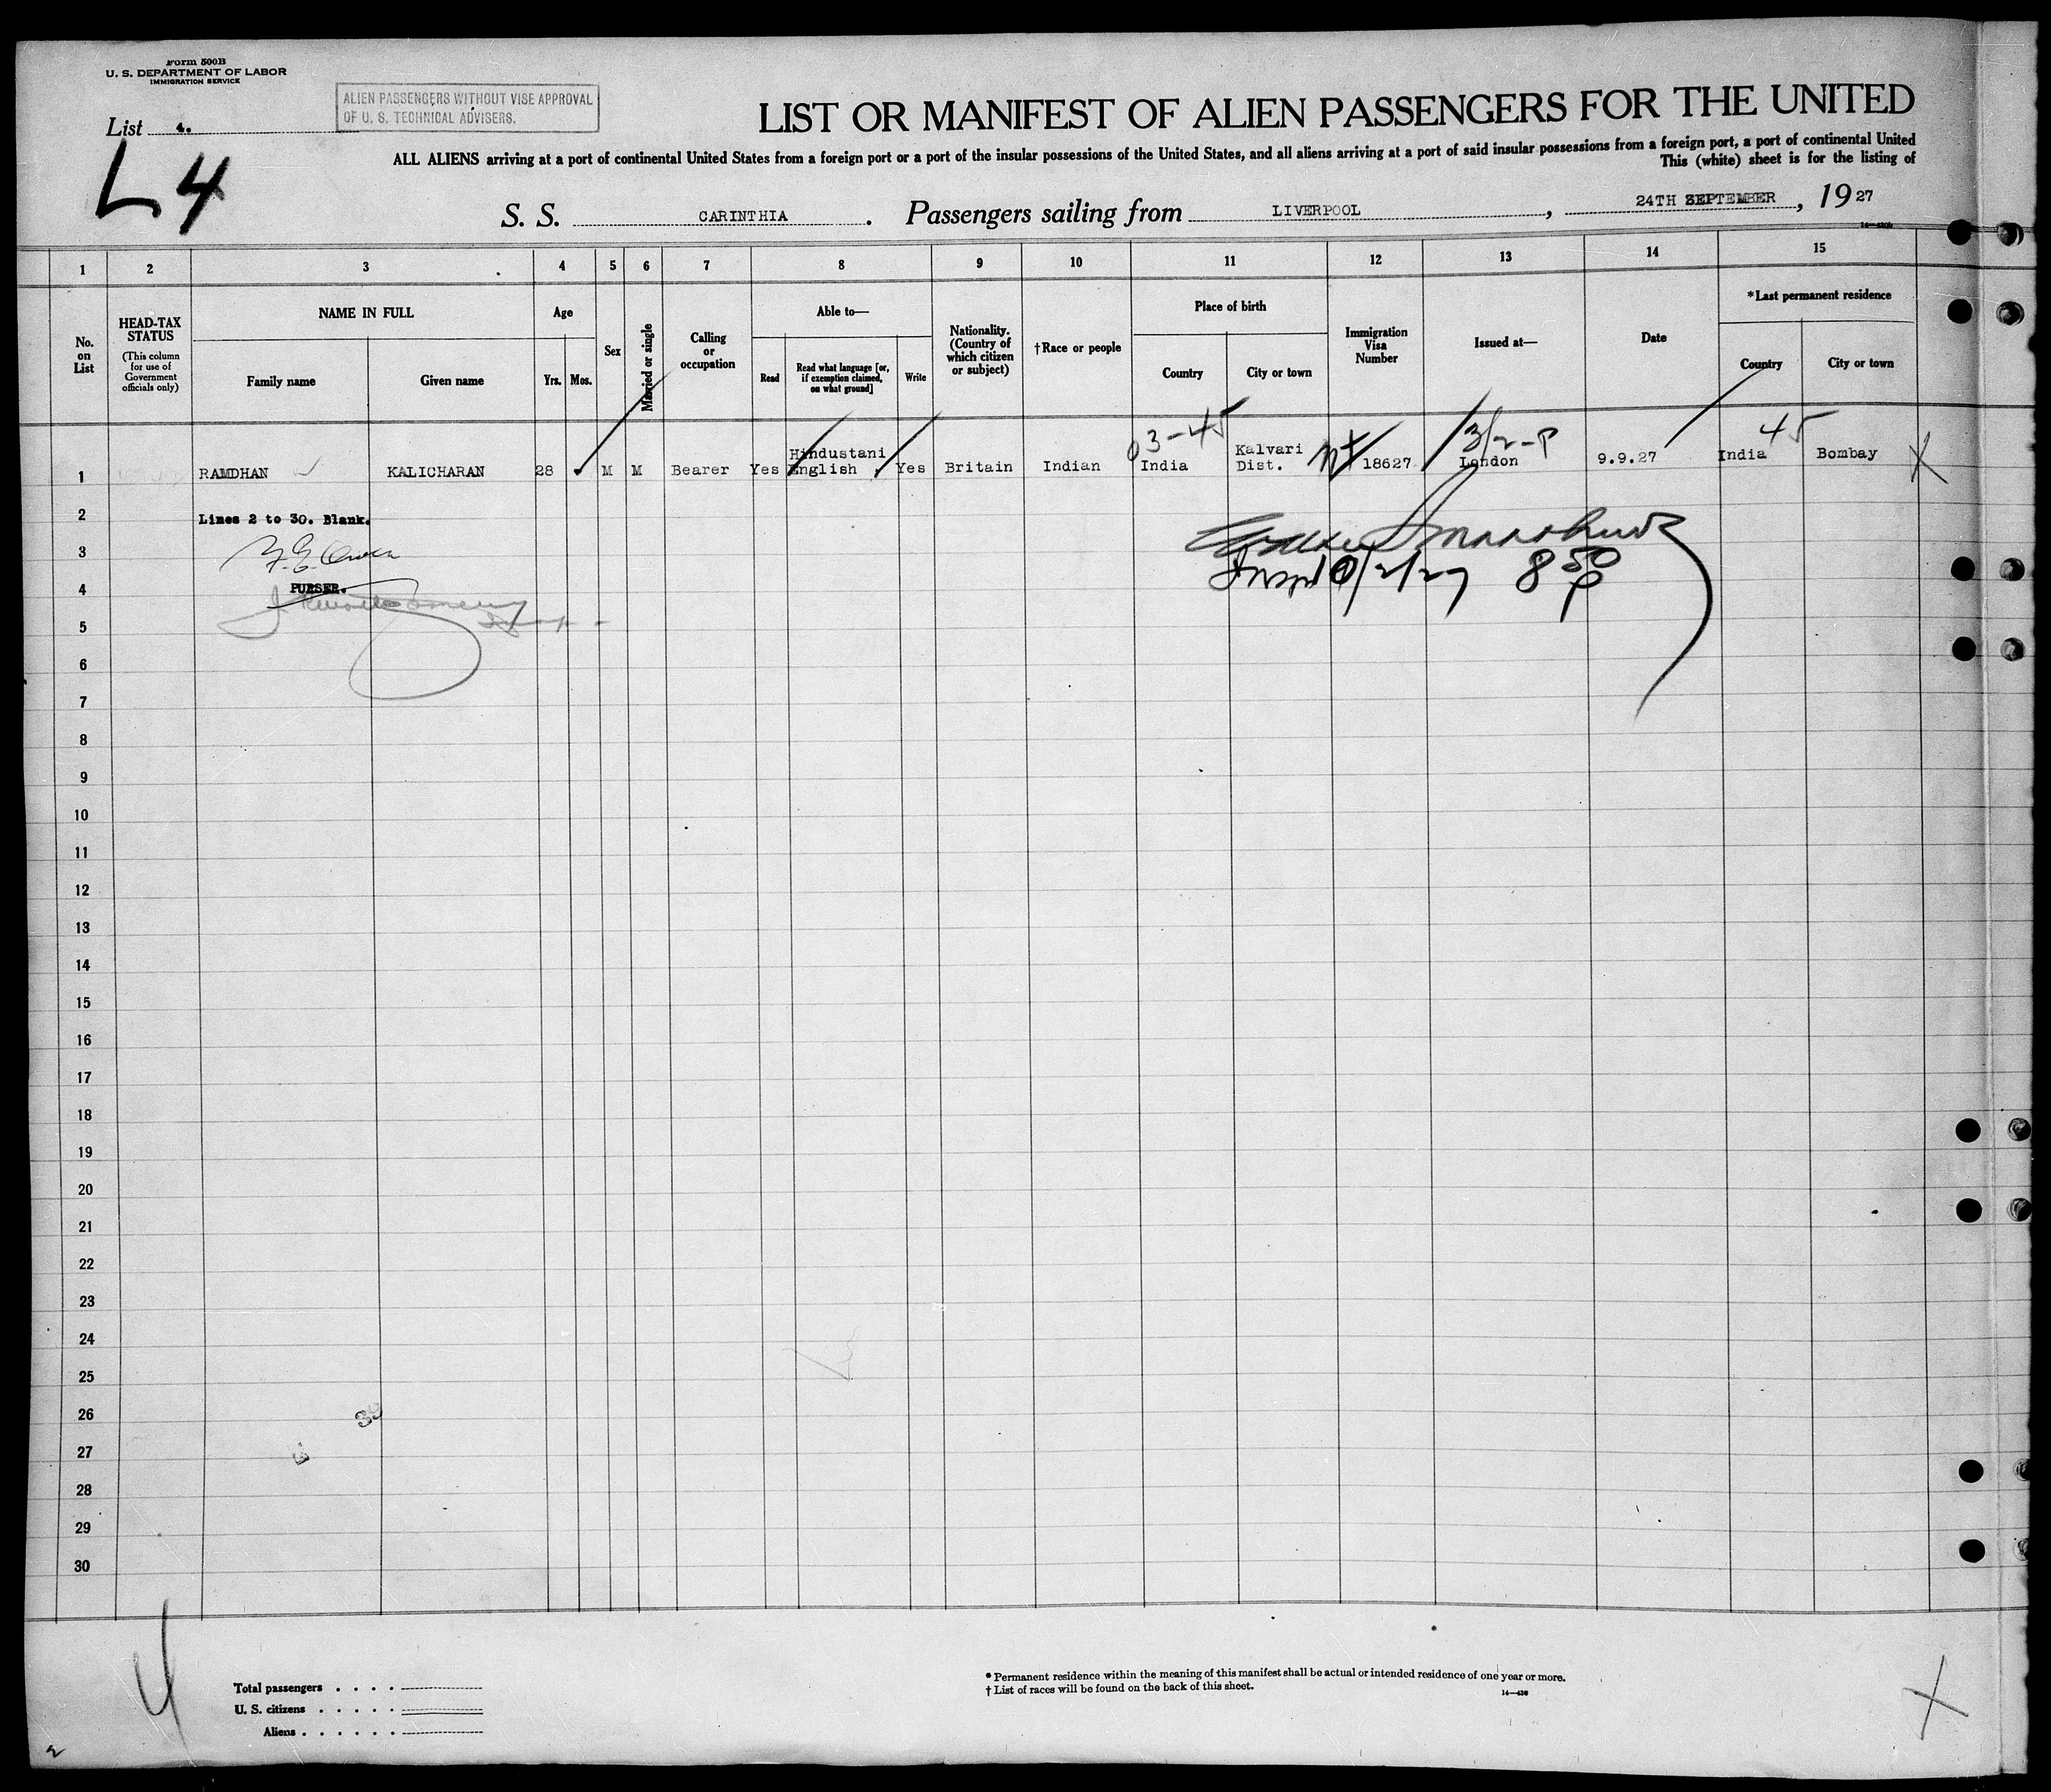 Form 500B
U. S. DEPARTMENT OF LABOR
IMMIGRATION SERVICE
ALIEN PASSENGERS WITHOUT VISE APPROVAL
OF U. S. TECHNICAL ADVISERS.
List 4.
L4
LIST OR MANIFEST OF ALIEN PASSENGERS FOR THE UNITED
ALL ALIENS arriving at a port of continental United States from a foreign port or a port of the insular possessions of the United States, and all aliens arriving at a port of said insular possessions from a foreign port, a port of continental United
This (white) sheet is for the listing of
S. S. CARINTHIA. Passengers sailing from LIVERPOOL, 24TH SEPTEMBER, 1927
1 2 3 4 5 6 7 8 9 10 11 12 13 14 15
No. on List
HEAD-TAX STATUS
(This column for use of Government officials only)
NAME IN FULL
Family name
Given name
Age
Yrs.
Mos.
Sex
Married or single
Calling or occupation
Able to—
Read
Read what language [or, if exemption claimed, on what ground]
Write
Nationality. (Country of which citizen or subject)
†Race or people
Place of birth
Country
City or town
Immigration Visa Number
Issued at—
Date
*Last permanent residence
Country
City or town
03-45
3/2-P
45
1 RAMDHAN KALICHARAN 28 M M Bearer Yes Hindustani English Yes Britain Indian India Kalvari Dist. 18627 London 9.9.27 India Bombay X
2 Lines 2 to 30. Blank.
3 F.G. Owen
4 PURSER.
8 50 P
5
6
7
8
9
10
11
12
13
14
15
16
17
18
19
20
21
22
23
24
25
26
27
28
29
30
4
Total passengers
U. S. citizens
Aliens
* Permanent residence within the meaning of this manifest shall be actual or intended residence of one year or more.
† List of races will be found on the back of this sheet.
14—430
X